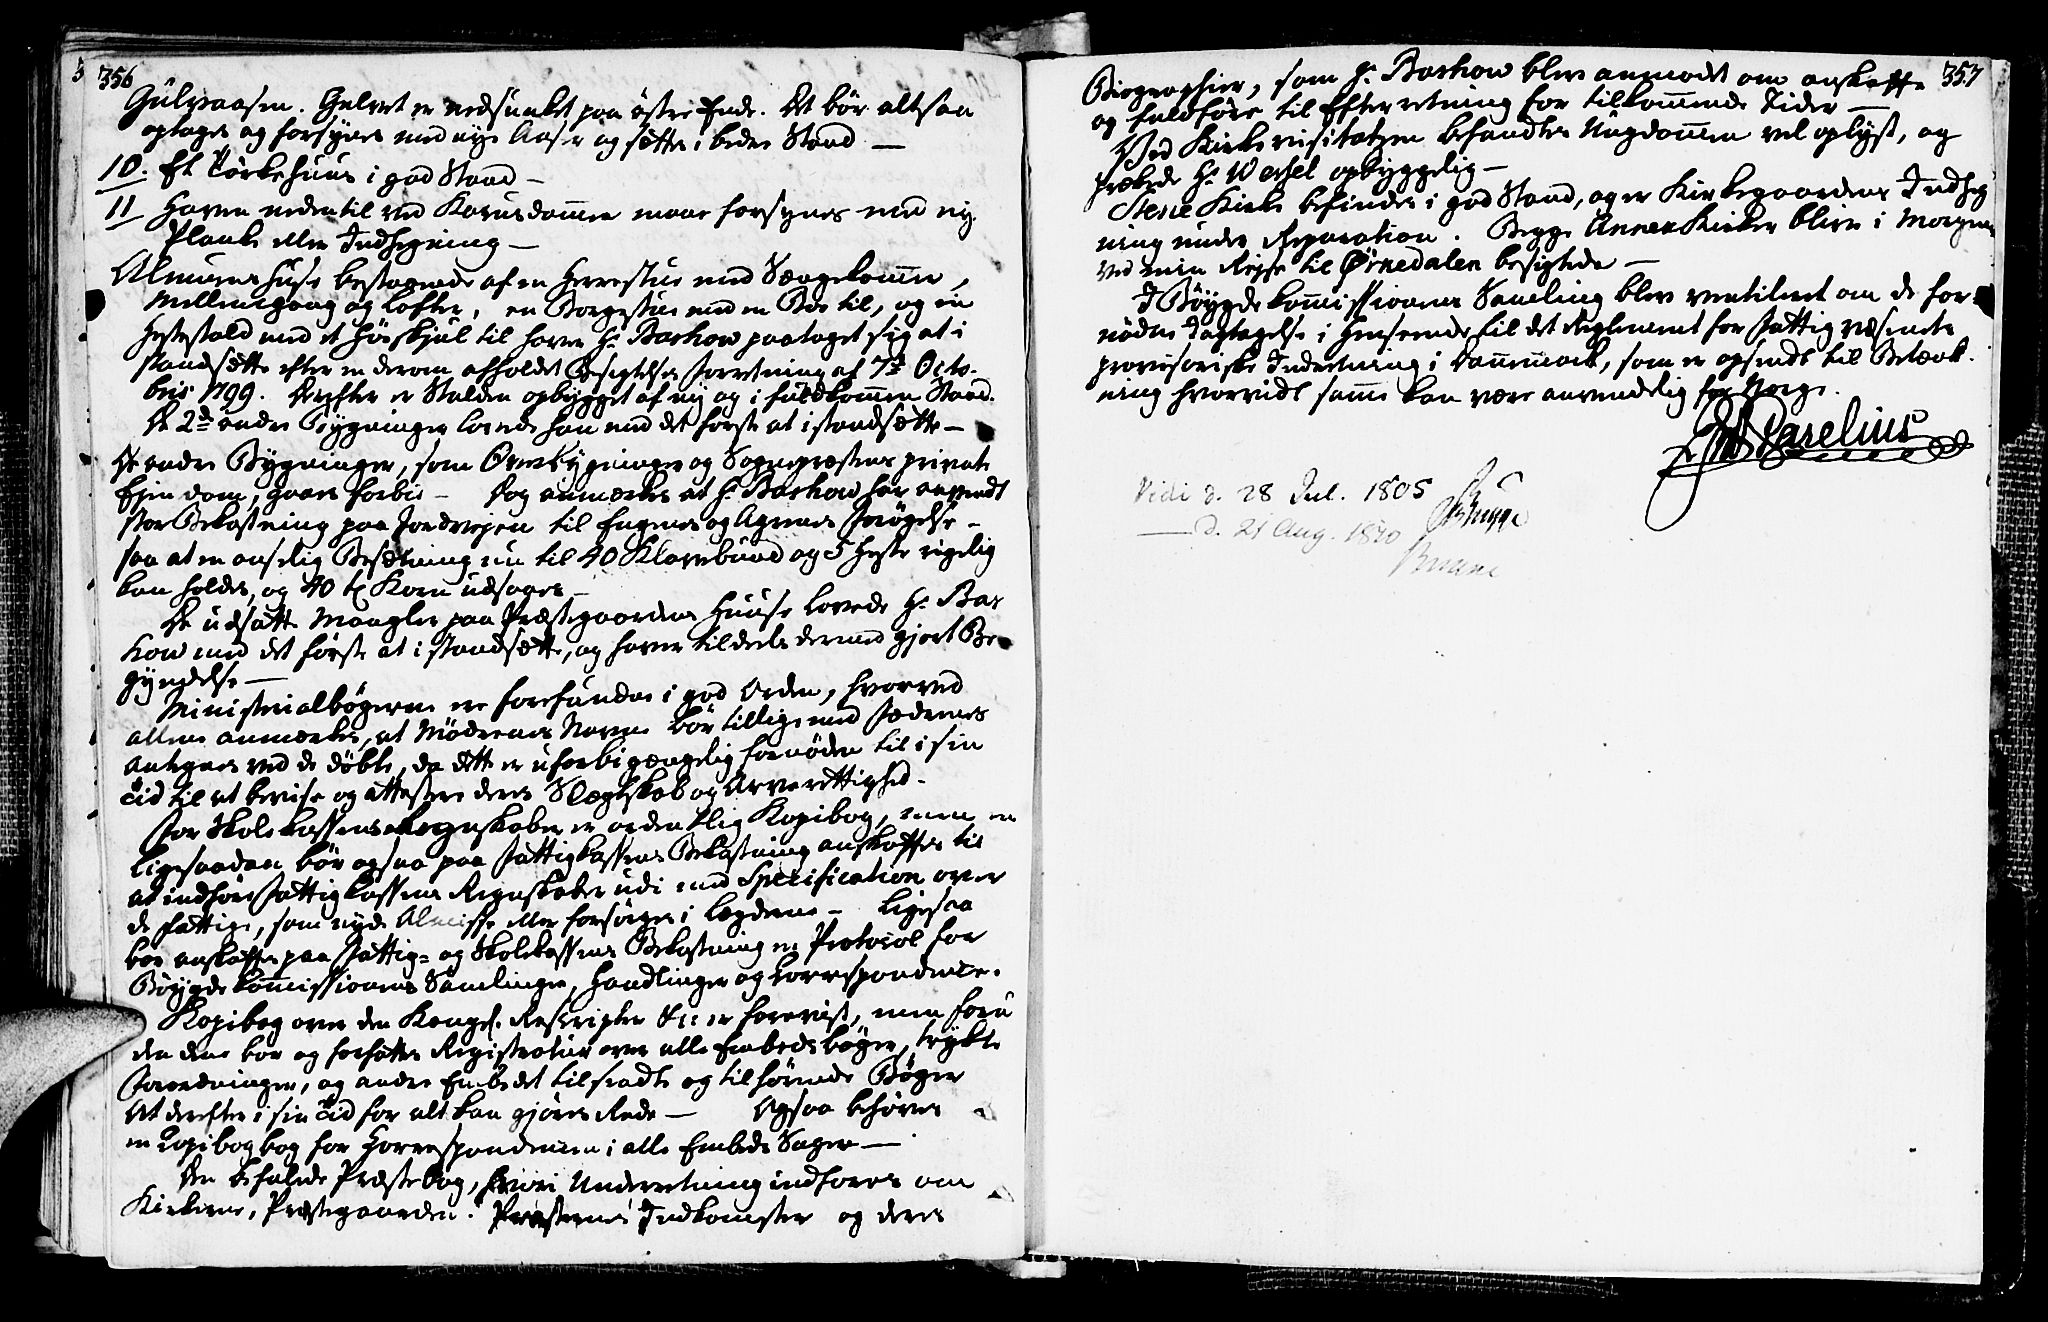 356
Gulvaasen. Gulvet er nedsunket paa östre Ende. Det bör altsaa
optages og forsynes med nye Aaser og sættes i bedre Stand —
10. Et Törkehuus i god Stand —
11 Haven nedentil ved Karusdammen maae forsynes med nye
Planke eller Indhegning —
huse bestaaende af en Herrestue med Sængekammer,
Mellemgang og Lofter, en Borgestue med en Boe til, og en
Hestestald med et Höeskjul til haver Hr Baskow paataget sig at i
standsætte efter en derom afholdet Besigtelses Forretning af 7de Octo-
bris 1799. Derefter er Stalden opbygget af ny og i fuldkommen Stand.
De 2de andre Bygninger lovede han med det förste at istandsætte —
De andre Bygninger, som Overbygninger og Sognepræstens private
Ejendom, gaaes forbie — Dog anmærkes at Hr Baskow har anvendt
stor Bekostning paa Jordvejen til Engenes og Agrenes Forögelse —
saa at en anselig Besætning nu til 40 Klovebund og 5 Heste rigelig
kan holdes, og 40 t Korn udsaaes —
De udsatte Mangler paa Præstegaardens Huuse lovede Hr Bas
kow med det förste at istandsætte, og haver tildeels dermed gjort Be
gyndelse —
Ministerialbögerne ere forefundne i god Orden, hvorved
allene anmærkes, at Mödrenes Navne bör tillige med Fædrenes
antegnes ved de döbte, da dette er uforbigængelig fornöden til i sin
Tid til at bevise og attestere deres Slægtskab og Arverettighed —
For Skolekassens Regnskaber er ordentlig Kopibog, men en
ligesaadan bör ogsaa paa Fattigkassens Bekostning anskaffes til
at indföre Fattigkassens Regnskaber udi med Specification over
de fattige, som nyde Almisse eller forsörges i Lægderne — Ligesaa
bör anskaffes paa Fattig= og Skolekassens Bekostning en Protocol for
Böygdekommissionens Samlinger, Handlinger og Correspondence.
Kopibog over den Kongel. Rescripter &c er forevist, men foru
den dene bör og forfattes Registratur over alle Embedsböger, trykte
Forordninger, og andre Embedet tilsendte og tilhörende Böger
At derefter i sin Tid for alt kan gjöres Rede — Ogsaa behöves
en Copibog bog for Correspondencen i alle Embeds Sager —
Den befalede Præstebog, hvori Underretning indföres om
Kirkerne, Præstegaarden. Præsternes Indkomster og deres
357
Biographier, som Hr Baskow blev anmodet om anskaffe
og fuldföre til Efterretning for tilkommende Tider —
Ved Kirkevisitatzen befandtes Ungdommen vel oplyst, og
prækede Hr Wessel opbyggelig —
Kirke befindes i god Stand, og er Kirkegaardens Indheg
ning under Reparation. Begge Annex Kirker blive i Morgen
ved min Rejse til Ørkedalen besigtede —
I Böygdekommissionens Samling blev ventileret om de for-
nödne Iagttagelse i Henseende til det Reglement for Fattigvæsenets
provisoriske Indretning i Dannemark, som er opsendt til Betænk-
ning hvorvidt samme kan være anvendelig for Norge.
Parelius
Vidi d. 28 Jul. 1805
Bugge
— d. 21 Aug. 1840